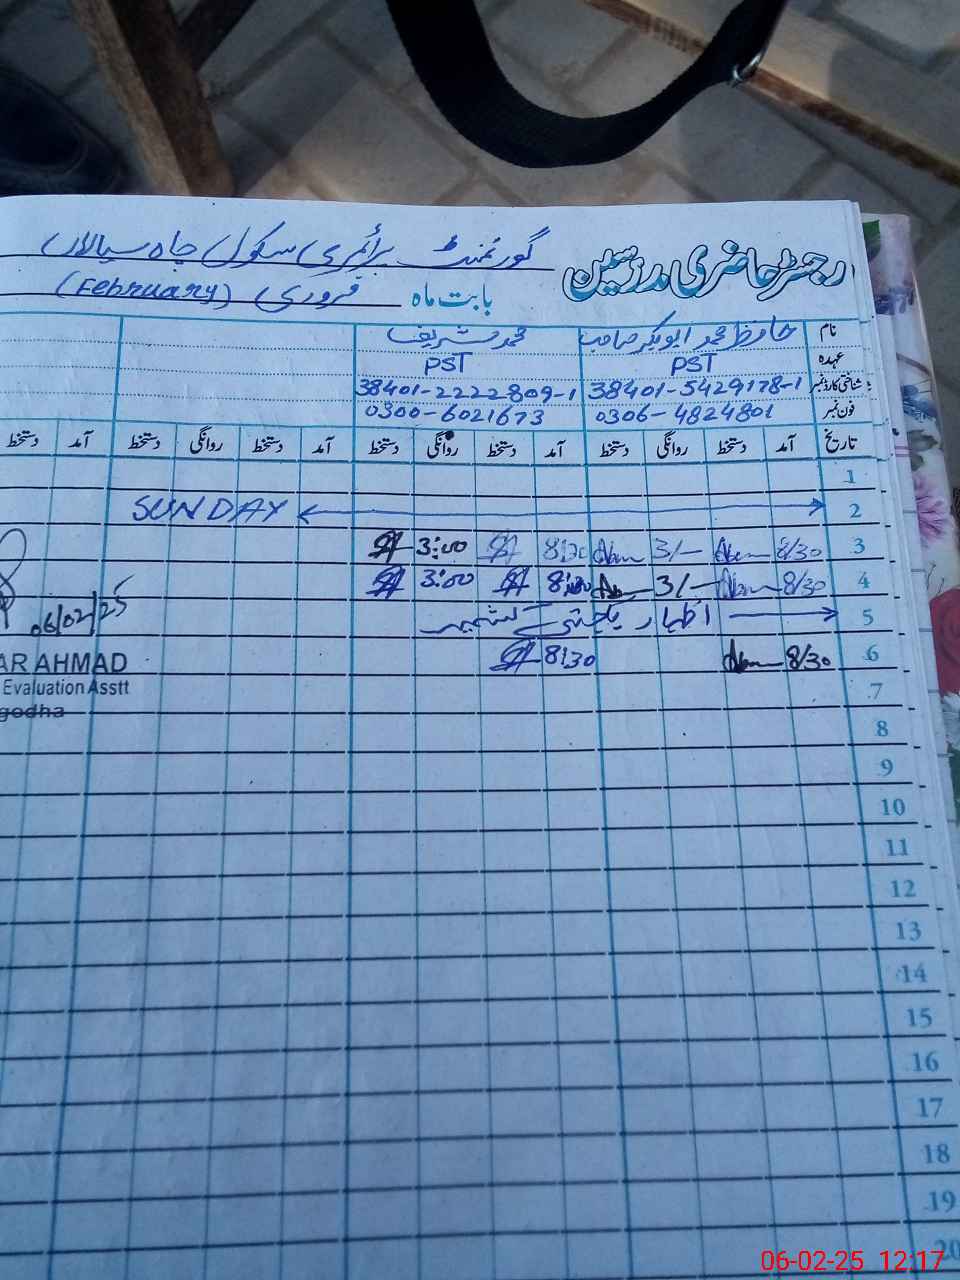 رجسٹر حاضری مدرسین گورنمنٹ پرائمری سکول چاہ سیالاں
بابت ماہ فروری (February)
نام حافظ محمد ابوبکر صاحب محمد شریف
عہدہ PST PST
شناختی کارڈ نمبر 38401-5429178-1 38401-2222809-1
فون نمبر 0306-4824801 0300-6021673
تاریخ آمد دستخط روانگی دستخط آمد دستخط روانگی دستخط آمد دستخط روانگی دستخط آمد دستخط
1
2 SUNDAY
3 8/30 3/- 8:30 3:00
4 8/30 3/- 8:30 3:00
5 اظہار یکجہتی کشمیر
6 8/30 8:30
06/02/25
AR AHMAD
Evaluation Asstt
godha
7
8
9
10
11
12
13
14
15
16
17
18
19
20
06-02-25 12:17